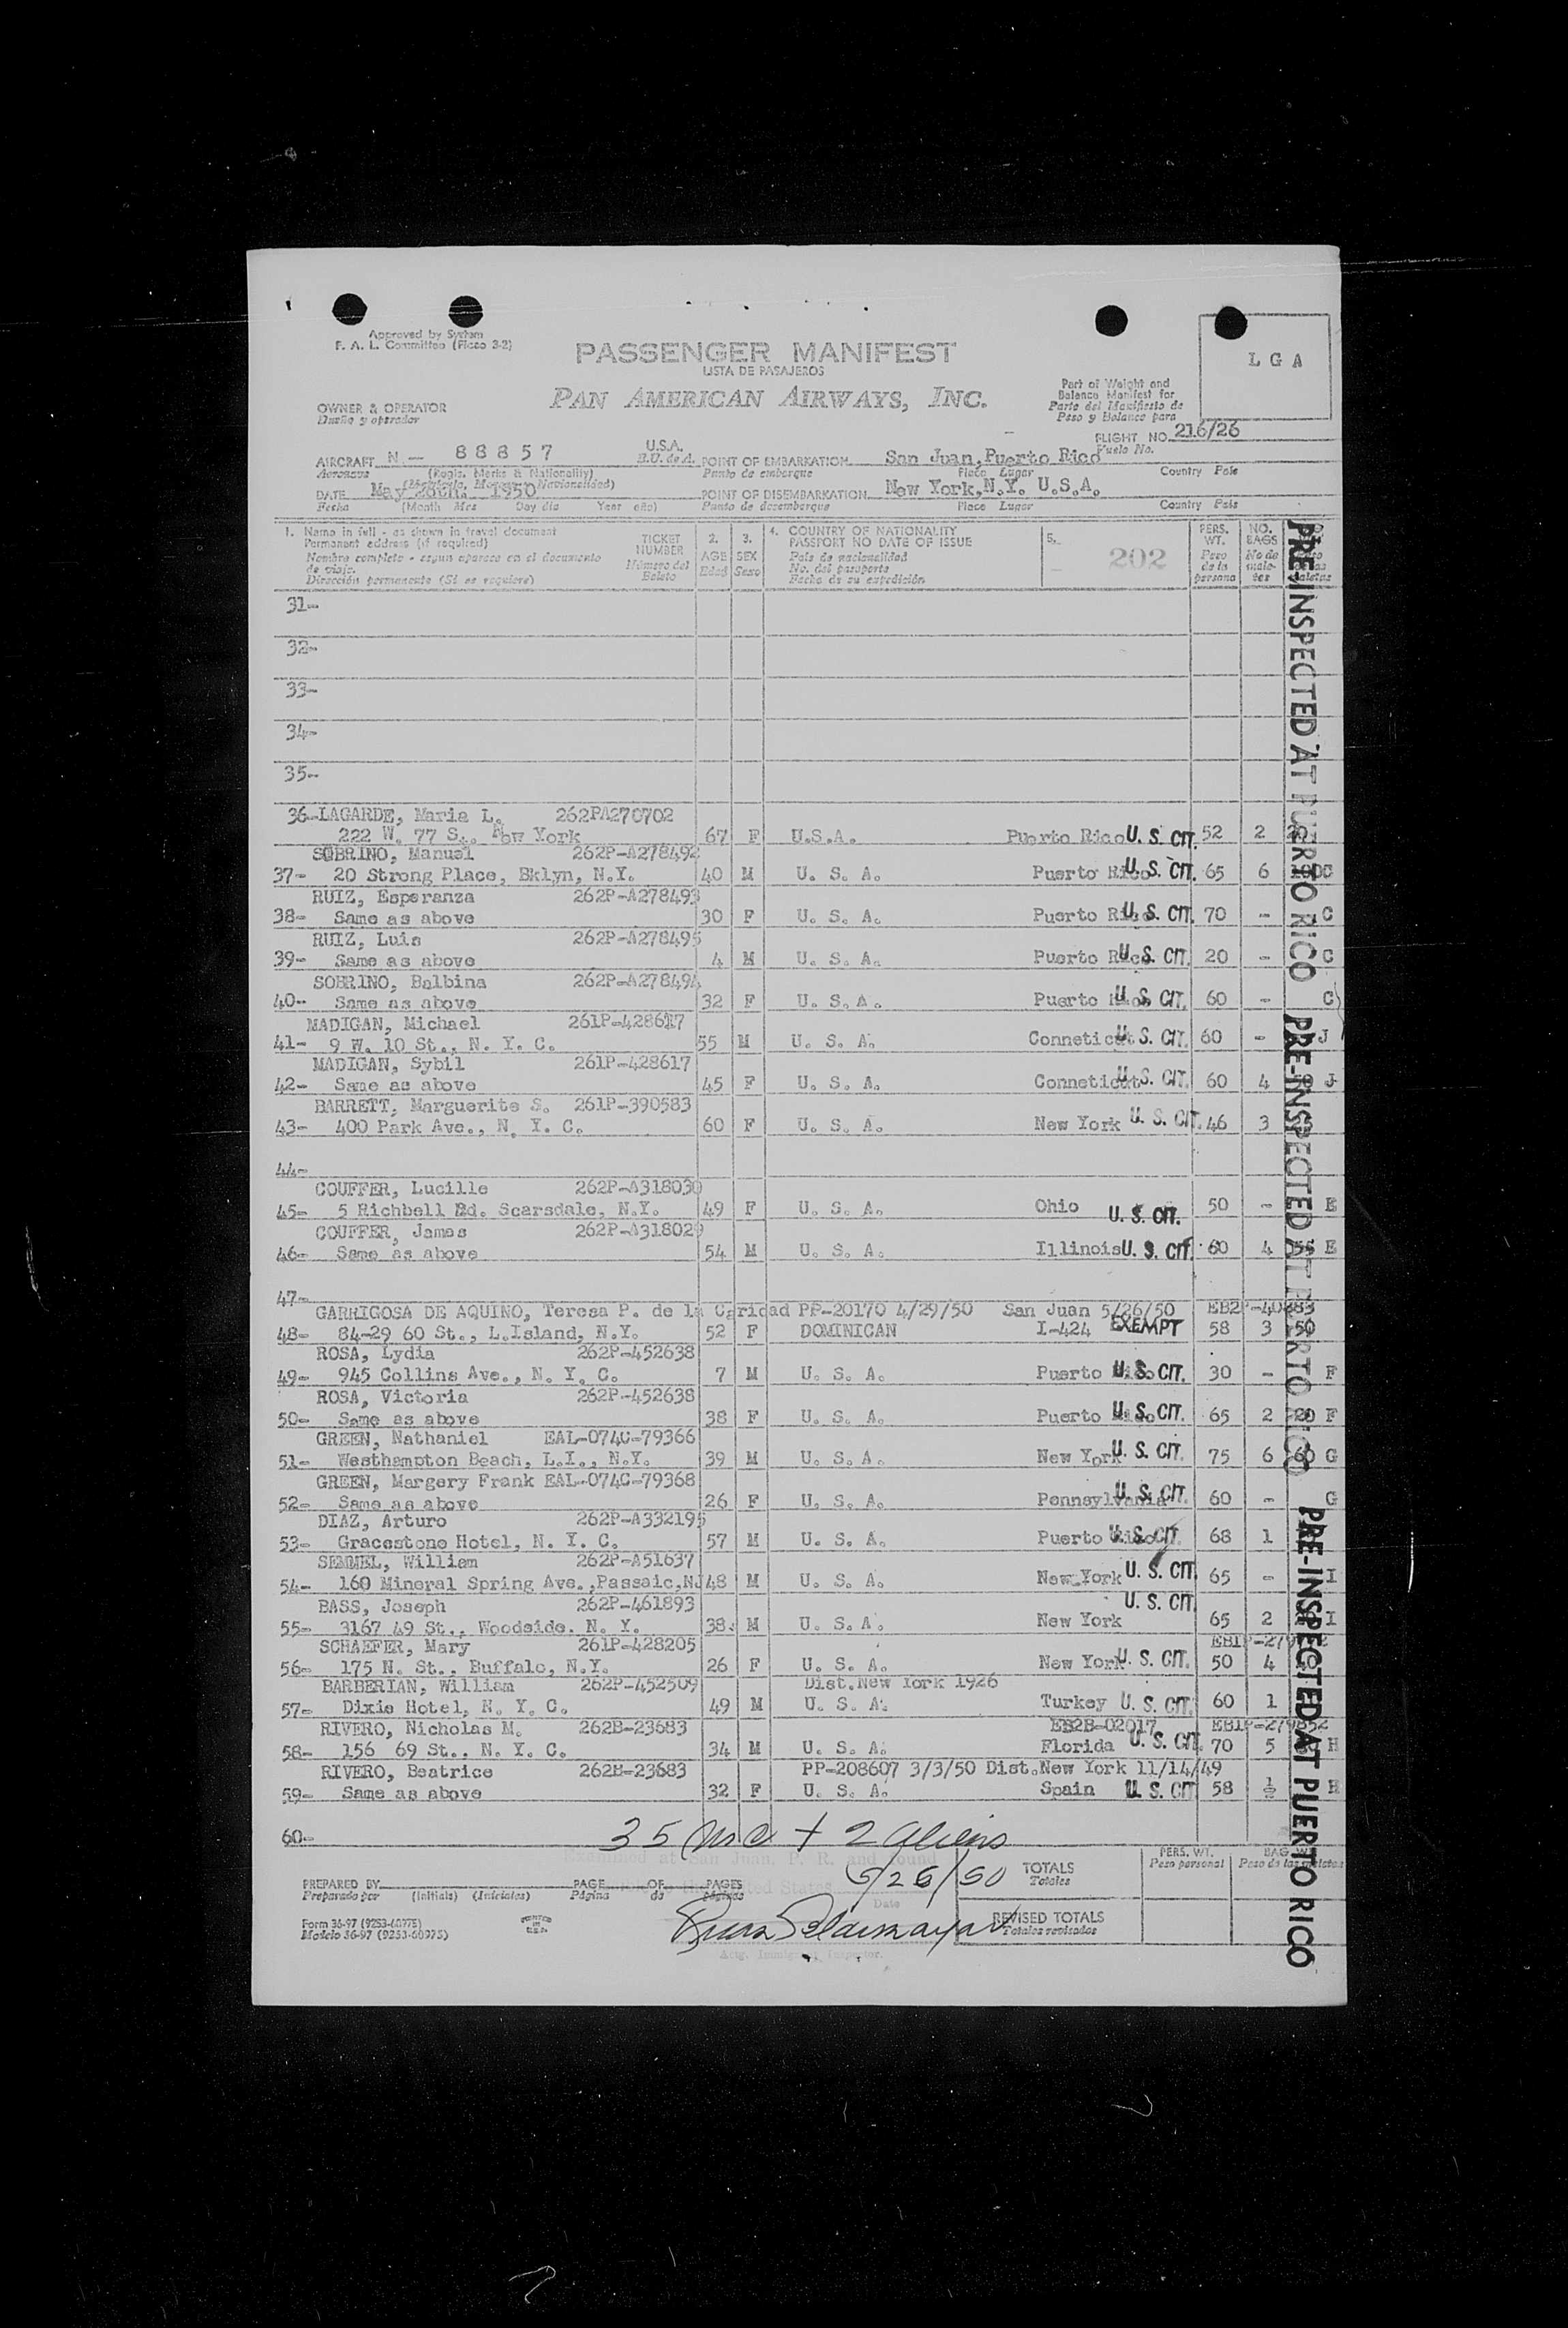 Approved by System
F. A. L. Committee (Ficco 3-2)
PASSENGER MANIFEST
LISTA DE PASAJEROS
PAN AMERICAN AIRWAYS, INC.
L G A
Part of Weight and
Balance Manifest for
Parte del Manifiesto de
Peso y Balance para
OWNER & OPERATOR
Dueño y operador
FLIGHT NO. 216/26
Vuelo No.
AIRCRAFT N.- 88857 U.S.A. POINT OF EMBARKATION San Juan, Puerto Rico
Aeronave (Regis. Marks & Nationality) E.U. de A. Punto de embarque Place Lugar Country País
DATE May 1950 POINT OF DISEMBARKATION New York, N.Y. U.S.A.
Fecha (Month Mes Day día Year año) Punto de desembarque Place Lugar Country País
1. Name in full - as shown in travel document
Permanent address (if required)
Nombre completo - según aparece en el documento
de viaje.
Dirección permanente (Si se requiere)
TICKET
NUMBER
Número del
Boleto
2.
AGE
Edad
3.
SEX
Sexo
4. COUNTRY OF NATIONALITY
PASSPORT NO DATE OF ISSUE
País de nacionalidad
No. del pasaporte
Fecha de su expedición
5.
202
PERS.
WT.
Peso
de la
persona
NO.
BAGS
No de
male-
tas
31-
32-
33-
34-
35-
36-LAGARDE, Maria L. 262PA270702
222 W. 77 S.. New York 67 F U.S.A. Puerto Rico U. S. CIT. 52 2
SOBRINO, Manuel 262P-A278492
37- 20 Strong Place, Bklyn, N.Y. 40 M U. S. A. Puerto Rico U. S. CIT. 65 6 C
RUIZ, Esperanza 262P-A278493
38- Same as above 30 F U. S. A. Puerto Rico U. S. CIT. 70 - C
RUIZ, Luis 262P-A278495
39- Same as above 4 M U. S. A. Puerto Rico U. S. CIT. 20 - C
SOBRINO, Balbina 262P-A278494
40- Same as above 32 F U. S. A. Puerto Rico U. S. CIT. 60 - C
MADIGAN, Michael 261P-428617
41- 9 W. 10 St., N. Y. C. 55 M U. S. A. Conneticut U. S. CIT. 60 - J
MADIGAN, Sybil 261P-428617
42- Same as above 45 F U. S. A. Conneticut U. S. CIT. 60 4 J
BARRETT, Marguerite S. 261P-390583
43- 400 Park Ave., N. Y. C. 60 F U. S. A. New York U. S. CIT. 46 3
44-
COUFFER, Lucille 262P-A318030
45- 5 Richbell Rd. Scarsdale, N.Y. 49 F U. S. A. Ohio U. S. CIT. 50 - E
COUFFER, James 262P-A318029
46- Same as above 54 M U. S. A. Illinois U. S. CIT. 60 4 E
47-
GARRIGOSA DE AQUINO, Teresa P. de la Caridad PP-20170 4/29/50 San Juan 5/26/50 EB2P-40883
48- 84-29 60 St., L.Island, N.Y. 52 F DOMINICAN I-424 EXEMPT 58 3 50
ROSA, Lydia 262P-452638
49- 945 Collins Ave., N. Y. C. 7 M U. S. A. Puerto Rico U. S. CIT. 30 - F
ROSA, Victoria 262P-452638
50- Same as above 38 F U. S. A. Puerto Rico U. S. CIT. 65 2 20 F
GREEN, Nathaniel EAL-074C-79366
51- Westhampton Beach, L.I., N.Y. 39 M U. S. A. New York U. S. CIT. 75 6 60 G
GREEN, Margery Frank EAL-074C-79368
52- Same as above 26 F U. S. A. Pennsylvania U. S. CIT. 60 - G
DIAZ, Arturo 262P-A332195
53- Gracestone Hotel, N. Y. C. 57 M U. S. A. Puerto Rico U. S. CIT. 68 1
SEMMEL, William 262P-A51637
54- 160 Mineral Spring Ave.,Passaic,NJ 48 M U. S. A. New York U. S. CIT 65 - I
BASS, Joseph 262P-461893 U. S. CIT.
55- 3167 49 St., Woodside. N. Y. 38. M U. S. A. New York 65 2 I
SCHAEFER, Mary 261P-428205
56- 175 N. St., Buffalo, N.Y. 26 F U. S. A. New York U. S. CIT. 50 4
BARBERIAN, William 262P-452509 Dist.New York 1926
57- Dixie Hotel, N. Y. C. 49 M U. S. A. Turkey U. S. CIT. 60 1
RIVERO, Nicholas M. 262B-23683 EB2B-02017 EB1P-279852
58- 156 69 St.. N. Y. C. 34 M U. S. A. Florida U. S. CIT. 70 5 H
RIVERO, Beatrice 262B-23683 PP-208607 3/3/50 Dist.New York 11/14/49
59- Same as above 32 F U. S. A. Spain U. S. CIT 58 H
60-
35 + 2 aliens
Examined at San Juan, P. R. and found
United States
5/26/50
Date
PREPARED BY PAGE OF PAGES
Preparado por (Initials) (Iniciales) Página de páginas
TOTALS
Totales
PERS. WT.
Peso personal
BAG WT.
Peso de las maletas
REVISED TOTALS
Totales revisados
Form 36-97 (9253-60975)
Modelo 36-97 (9253-60975)
PRINTED
IN
U.S.A.
Actg. Immigrant Inspector.
PRE-INSPECTED AT PUERTO RICO
PRE-INSPECTED AT PUERTO RICO
PRE-INSPECTED AT PUERTO RICO